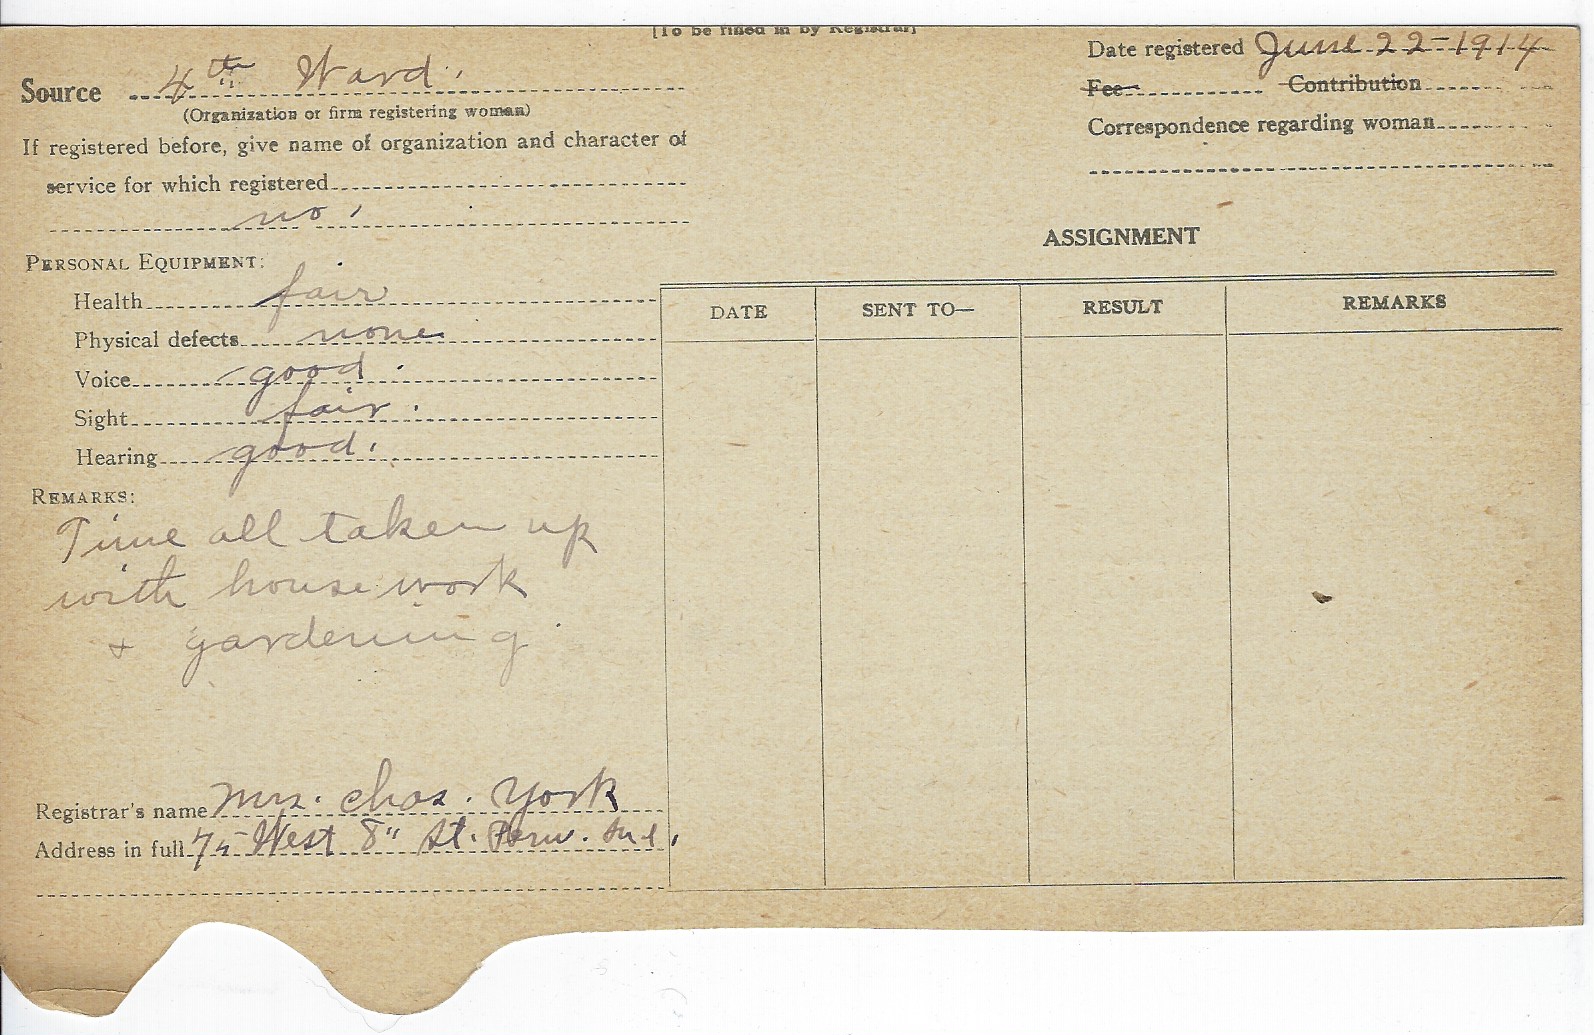 [To be filled in by Registrar]
Date registered June 22-1914
Source 4th Ward.
(Organization or firm registering woman)
Fee Contribution
Correspondence regarding woman
If registered before, give name of organization and character of
service for which registered
no.
ASSIGNMENT
PERSONAL EQUIPMENT:
Health fair
Physical defects none
Voice good.
Sight fair.
Hearing good.
DATE SENT TO— RESULT REMARKS
REMARKS:
Time all taken up
with house work
+ gardening.
Registrar's name Mrs. Chas. York
Address in full 75 West 8" St. Peru. Ind.